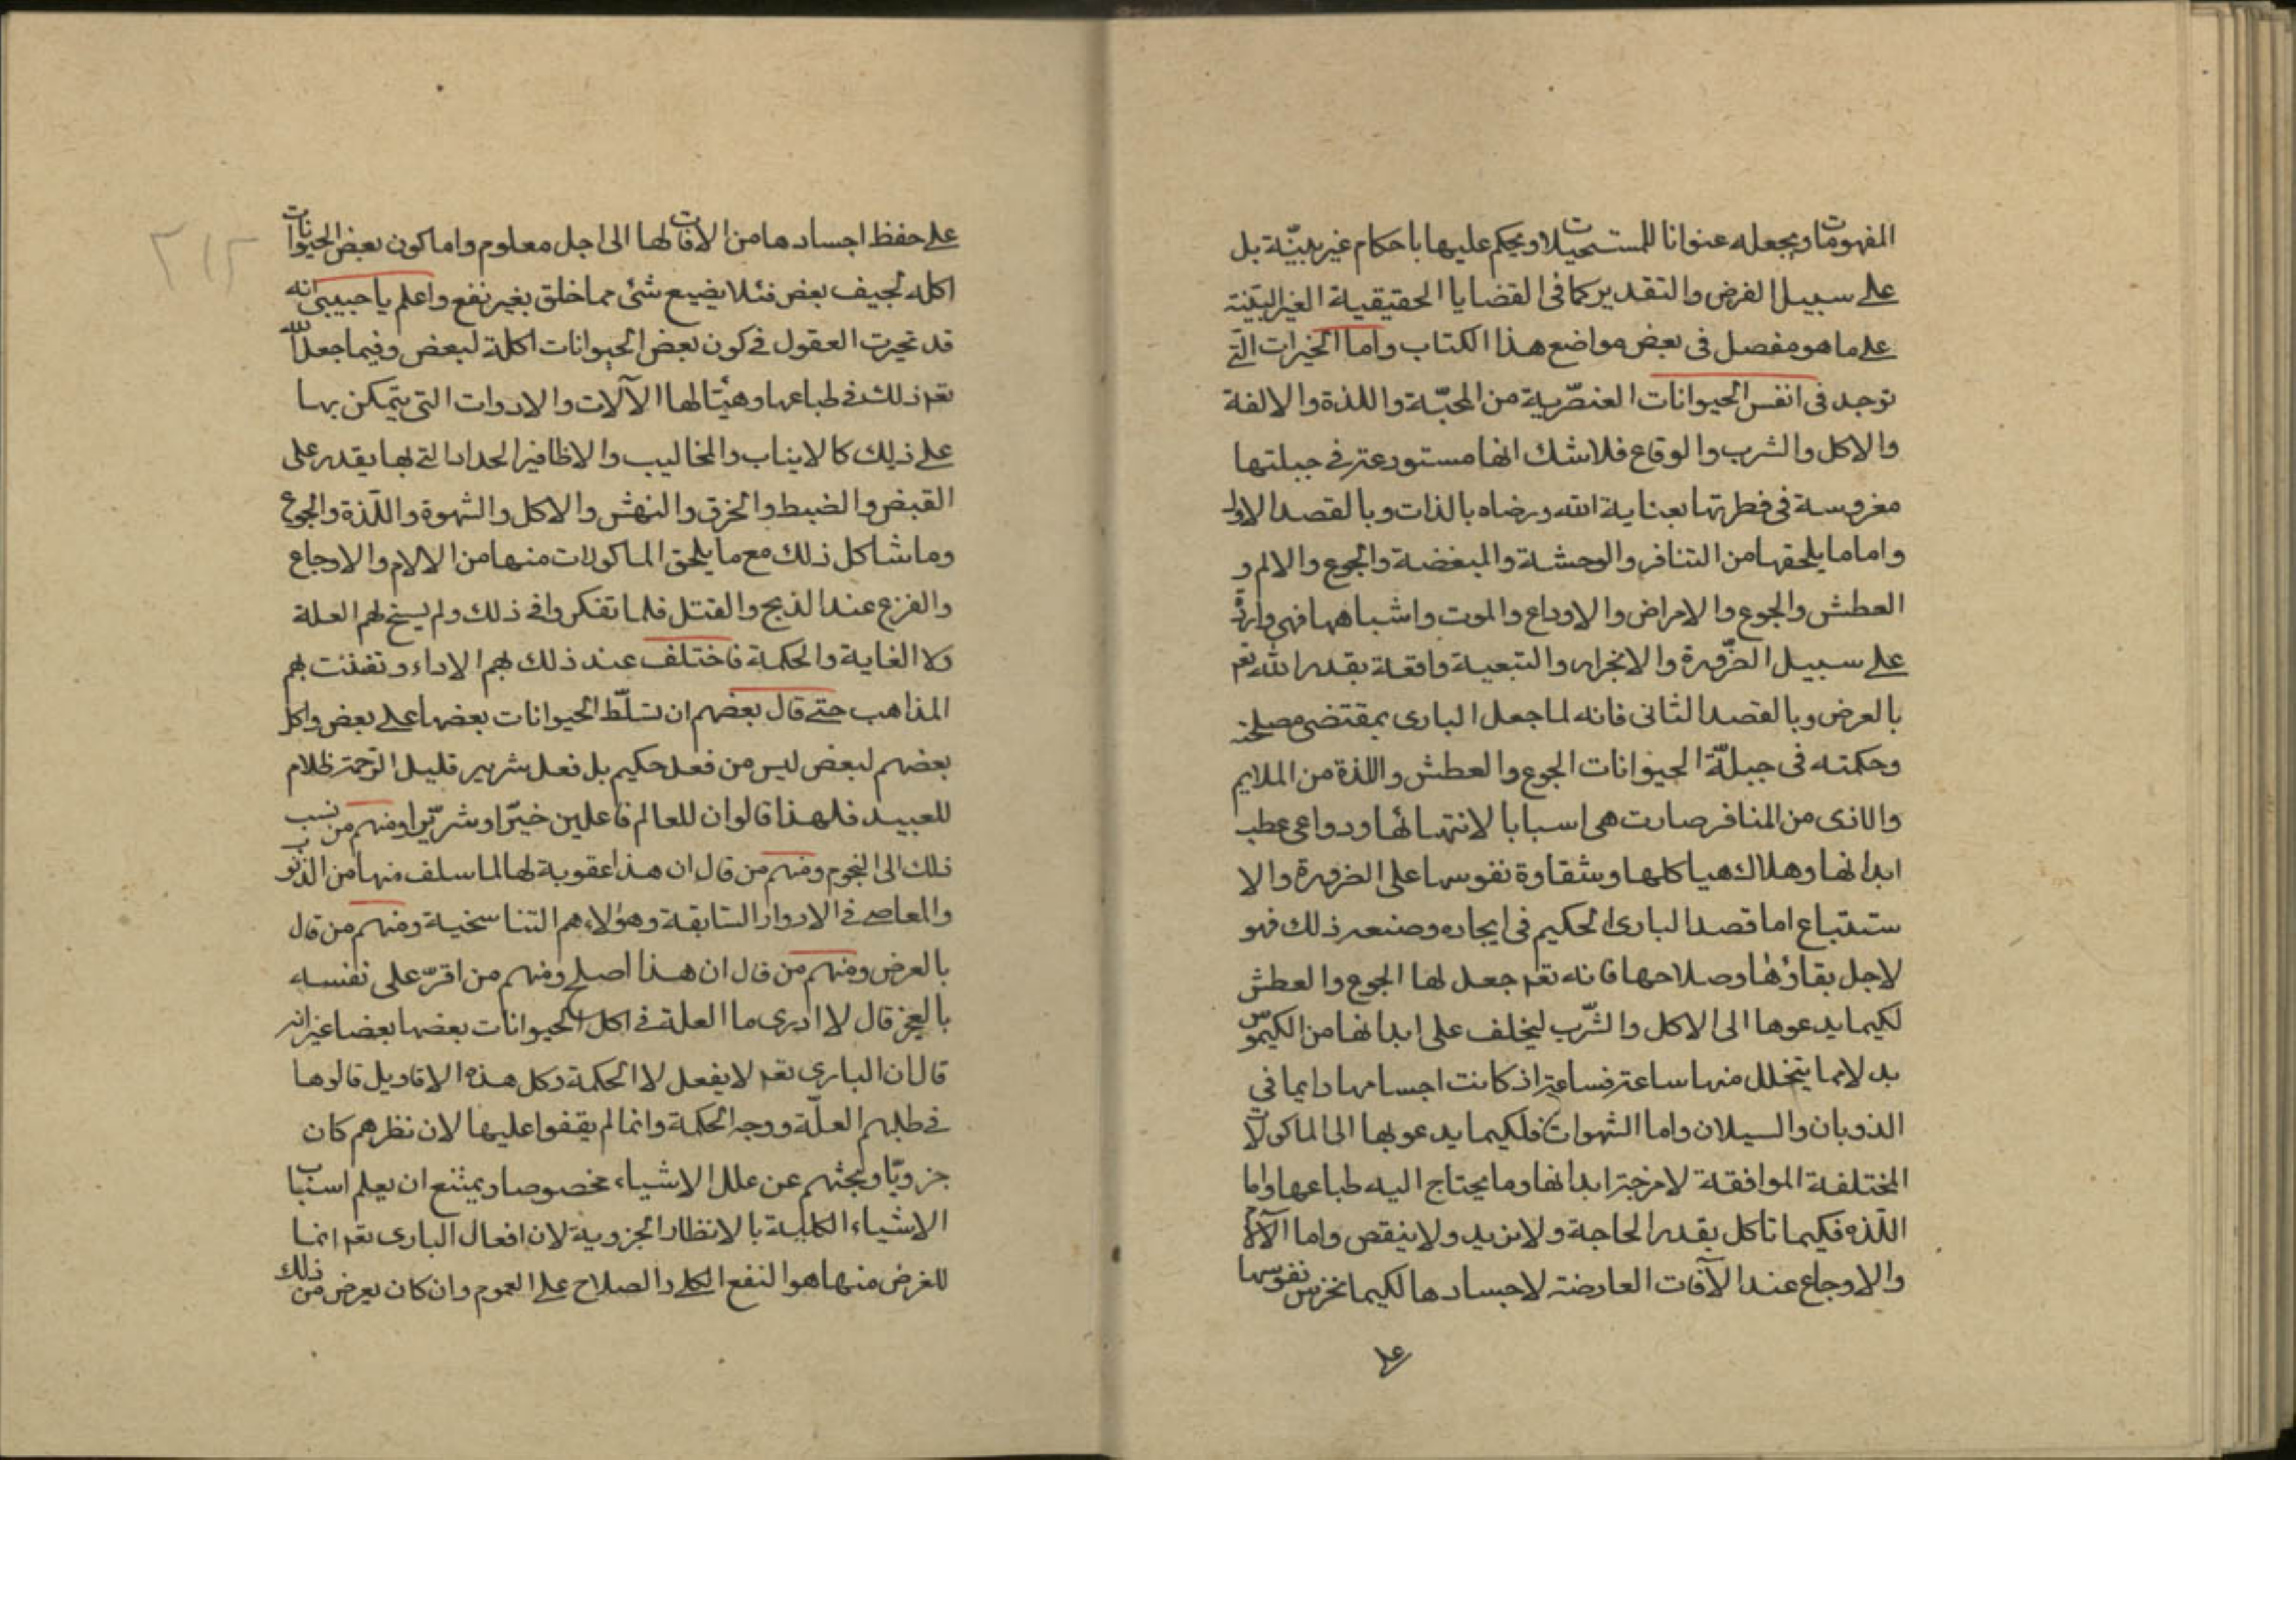 المفهومات ويجعله عنوانا للمستحيلات ويحكم عليها باحكام غير بيّنة بل
على سبيل الفرض والتقدير كما فى القضايا الحقيقية الغير البتية
على ما هو مفصل فى بعض مواضع هذا الكتاب واما الخيرات التى
توجد فى انفس الحيوانات العنصّرية من المحبّة واللذة والالفة
والاكل والشرب والوقاع فلا شك انها مستودعة فى جبلتها
مغروسة فى فطرتها بعناية الله ورضاه بالذات وبالقصد الاول
واما ما يلحقها من التنافر والوحشة والمبغضة والجوع والالم و
العطش والجوع والامراض والاوداع والموت واشباهها فهى واردة
على سبيل الضّرورة والانجرار والتبعية واقعة بقدر الله تعم
بالعرض وبالقصد الثانى فانه لما جعل البارى بمقتضى مصلحته
وحكمته فى جبلّة الحيوانات الجوع والعطش واللذة من الملايم
والاذى من المنافر صارت هى اسبابا لانتهائها ودواعى عطب
ابدانها وهلاك هياكلها وشقاوة نفوسها على الضرورة والا
ستتباع اما قصد البارى الحكيم فى ايجاده وصنعه ذلك فهو
لاجل بقاؤها وصلاحها فانه تعم جعل لها الجوع والعطش
لكيما يدعوها الى الاكل والشّرب ليخلف على ابدانها من الكيموس
بدلا مما يتخلل منها ساعة فساعة اذ كانت اجسامها دايما فى
الذوبان والسيلان واما الشهوات فلكيما يدعو بها الى الماكولات
المختلفة الموافقة لامزجة ابدانها وما يحتاج اليه طباعها واما
اللّذه فكيما تاكل بقدر الحاجة ولا تزيد ولا ينقص واما الآلام
والاوجاع عند الآفات العارضة لاجسادها لكيما تحرس نفوسها
على
على حفظ اجسادها من الافات لها الى اجل معلوم واما كون بعض الحيوانات
اكله لجيف بعض فلئلا يضيع شئ مما خلق بغير نفع واعلم يا حبيبى انه
قد تحيرت العقول فى كون بعض الحيوانات اكلة لبعض وفيما جعل الله
تعم ذلك فى طباعها وهيّأ لها الآلات والادوات التى يتمكن بها
على ذلك كالانياب والمخاليب والاظافير الحداد التى بها يقدر على
القبض والضبط والخرق والنهش والاكل والشهوة واللّذة والجوع
وما شاكل ذلك مع ما يلحق الماكولات منها من الالام والاوجاع
والفزع عند الذبح والقتل فلما تفكروا فى ذلك ولم يسنح لهم العلة
ولا الغاية والحكمة فاختلف عند ذلك بهم الاداء وتفننت بهم
المذاهب حتى قال بعضهم ان تسلّط الحيوانات بعضها على بعض واكل
بعضهم لبعض ليس من فعل حكيم بل فعل شرير قليل الرّحمة ظلام
للعبيد فلهذا قالوا ان للعالم فاعلين خيّرا وشريّرا ومنهم من نسب
ذلك الى النجوم ومنهم من قال ان هذا عقوبة لها لما سلف منها من الذنوب
والمعاصى فى الادوار السّابقة وهؤلاء هم التناسخية ومنهم من قال
بالعرض ومنهم من قال ان هذا اصلح ومنهم من اقرّ على نفسه
بالعجز قال لا ادرى ما العلة فى اكل الحيوانات بعضها بعضا غير انه
قال ان البارى تعم لا يفعل لا الحكمة وكل هذه الاقاويل قالوها
فى طلبهم العلّة ووجه الحكمة وانما لم يقفوا عليها لان نظرهم كان
جزويّا وبحثهم عن علل الاشياء مخصوصا ويمتنع ان يعلم اسباب
الاشياء الكلية بالانظار الجزوية لان افعال البارى تعم انما
للغرض منها هو النفع الكلى والصلاح على العموم وان كان يعرض من ذلك
٢١٢